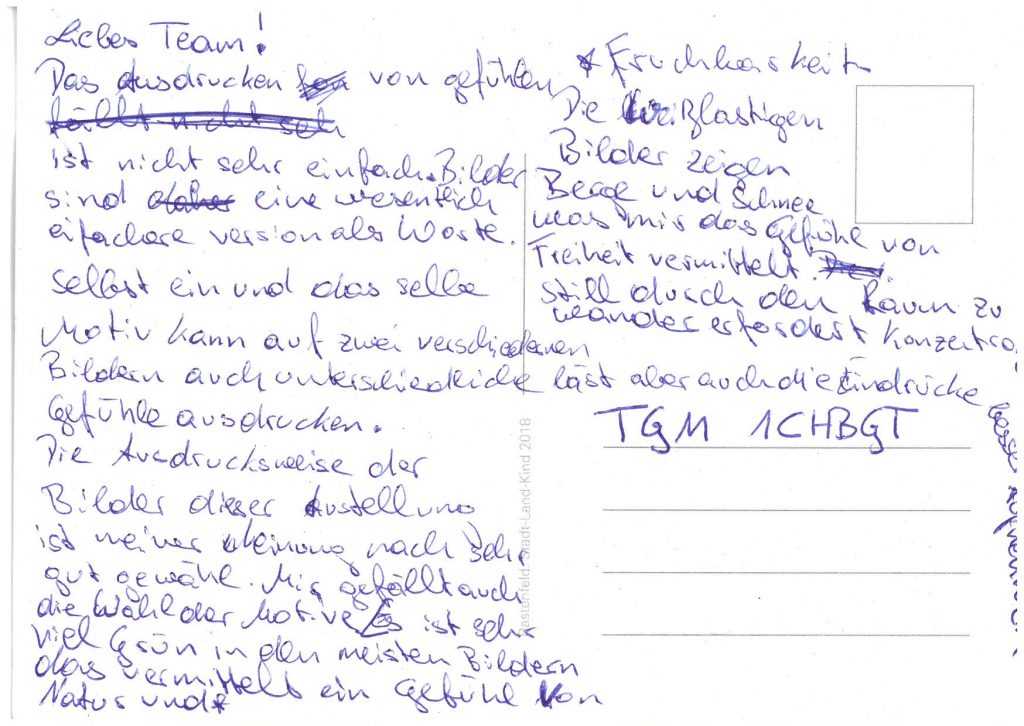 Liebes Team!
Das Ausdrucken von gefühlen
fällt nicht seh
ist nicht sehr einfach. Bilder
sind daher eine wesentlich
eifachere version als Worte.
selbst ein und das selbe
Motiv kann auf zwei verschiedenen
Bildern auch unterschiedliche
Gefühle ausdrucken.
Die Ausdrucksweise der
Bilder dieser Austellung
ist meiner Meinung nach sehr
gut gewähl. Mir gefällt auch
die Wahl der Motive Es ist sehr
viel Grün in den meisten Bildern
das vermittelt ein Gefühl von
Natur und*
* Fruchbarkeit
Die weißlastigen
Bilder zeigen
Berge und Schnee
was mir das Gefühl von
Freiheit vermittelt.
still durch den Raum zu
wander erfordert Konzentra
läst aber auch die Eindrücke
besser
TGM 1CHBGT
Rastenfeld: Stadt-Land-Kind 2018